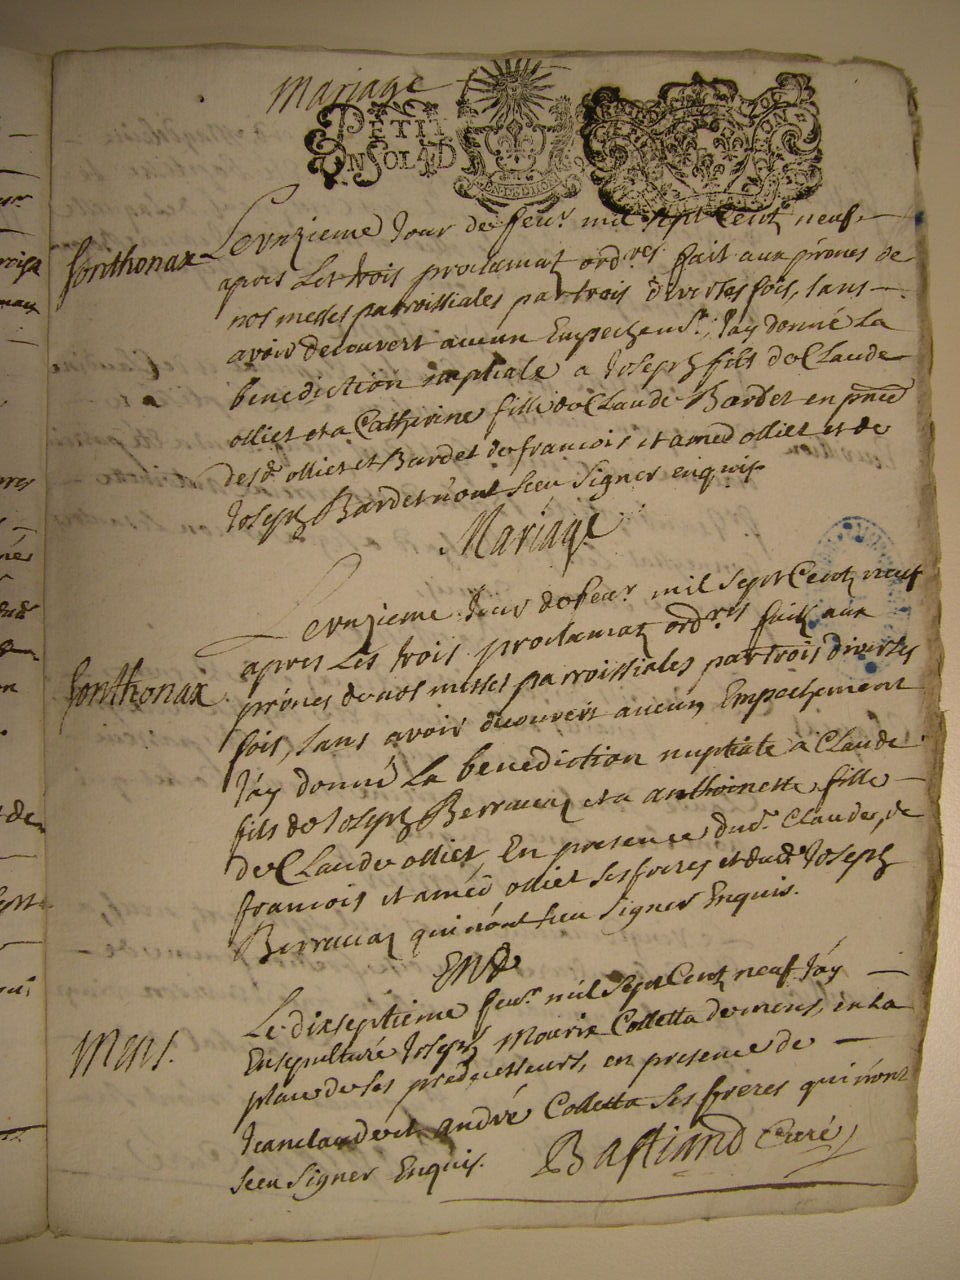 Mariage
PETIT
EN SOL 4 D
fonthonax
Le vnzieme Jour de feur mil sept Centz neuf
apres Les trois proclamatz ordres fait aux prônes de
nos messes parroissiales par trois diverses fois, sans
avoir decouvert aucun Empechenst, J'ay donné La
benediction nuptiale a Joseph fils de Claude
olliet et a Catherine fille de Claude Bardet en pnce
desd olliet et Bardet de francois et amed olliet et de
Joseph Bardet n'ont sceu signer enquis
Mariage
fonthonax
Le vnzieme Jour de feur mil sept Centz neuf
apres Les trois proclamatz ordres faitz aux
prônes de nos messes parroissiales par trois diverses
fois, sans avoir decouvert aucun Empechement
J'ay donné La benediction nuptiale a Claude
fils de Joseph Berraudz et a anthoinette fille
de Claude olliet, En presence dud Claude, de
francois et amed olliet ses freres et dud Joseph
Berraudz qui n'ont sceu signer Enquis.
Mens.
Le dixseptieme feur mil sept Centz neuf J'ay
Ensepulturé Joseph Mourix Colletta de mens, en La
place de ses predecesseurs, en presence de
Jean claude et andré Colletta ses freres qui n'ont
sceu signer Enquis. Bastiand Curé